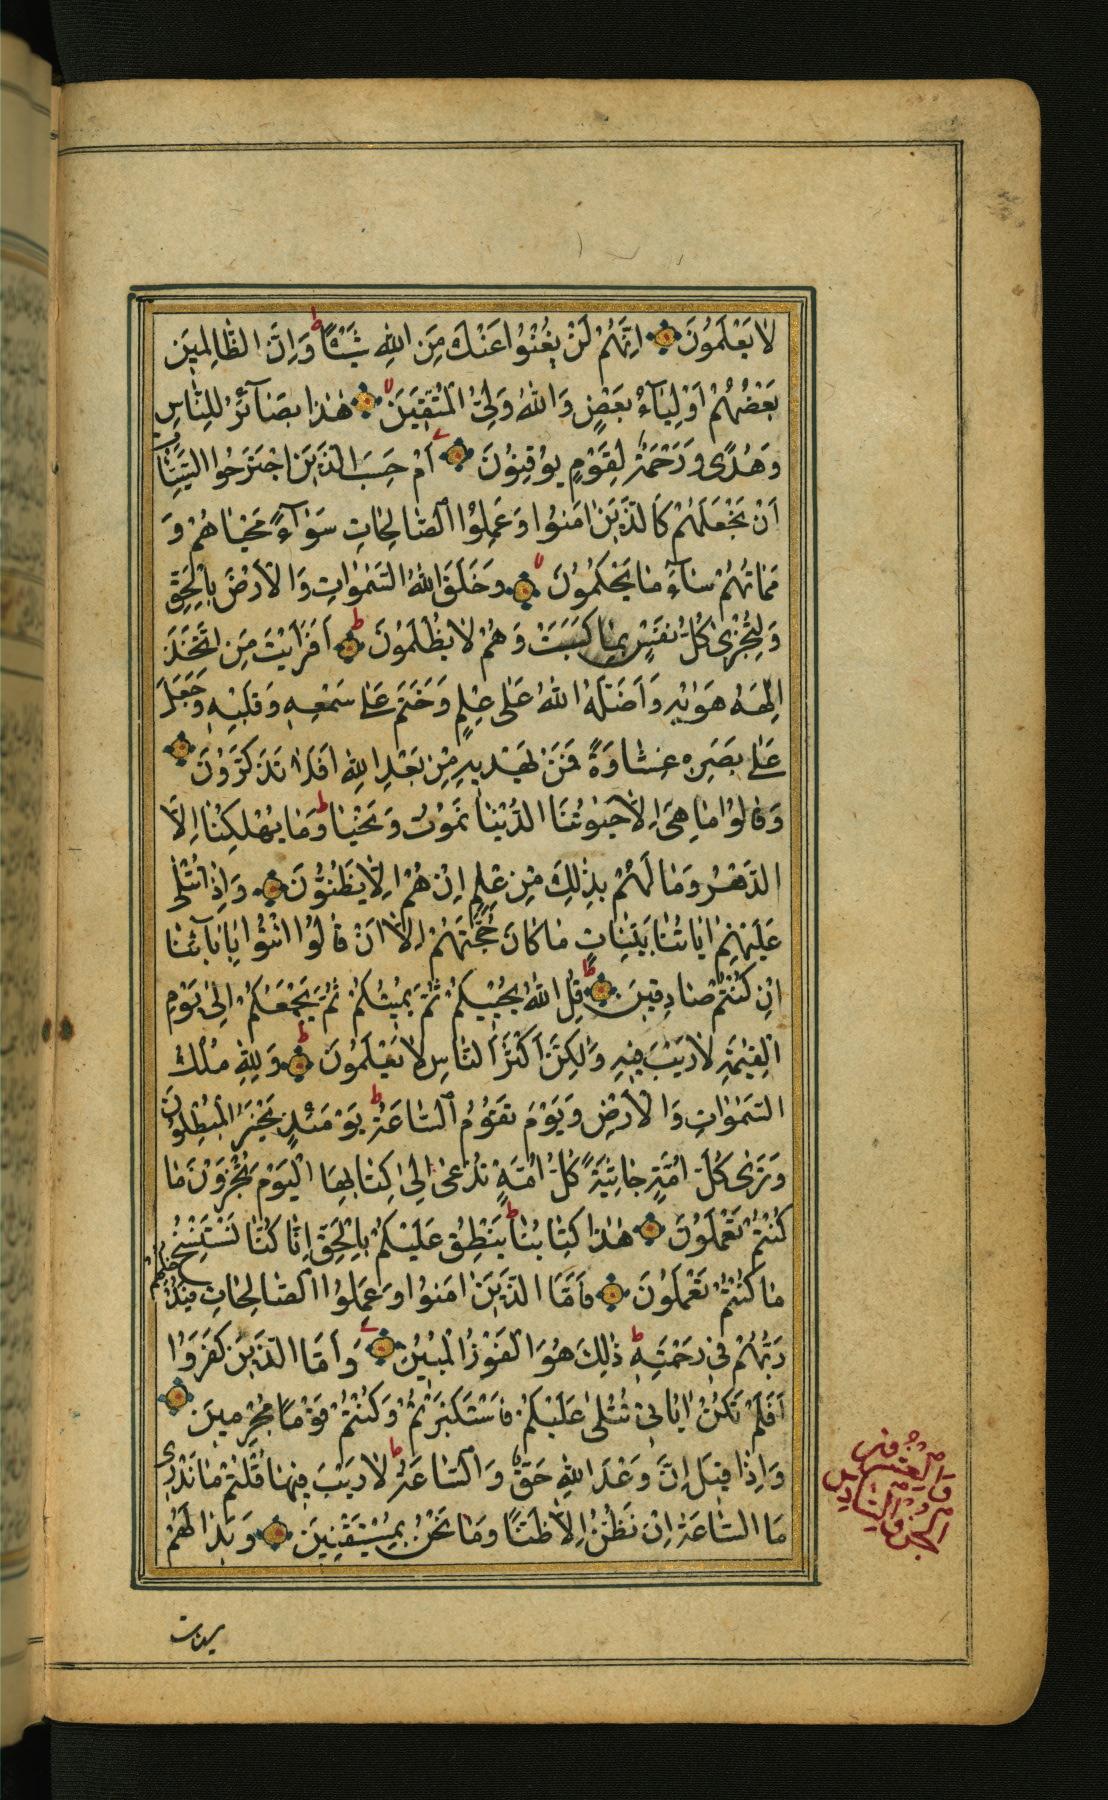 لَا يَعْلَمُونَ اِنَّهُمْ لَنْ يُغْنُوا عَنْكَ مِنَ اللهِ شَيْئًا ط وَاِنَّ الظَّالِمِينَ
بَعْضُهُمْ اَوْلِيَآءُ بَعْضٍ وَاللهُ وَلِيُّ الْمُتَّقِينَ هٰذَا بَصَآئِرُ لِلنَّاسِ
وَهُدًى وَرَحْمَةٌ لِقَوْمٍ يُوقِنُونَ اَمْ حَسِبَ الَّذِينَ اجْتَرَحُوا السَّيِّئَاتِ
اَنْ نَجْعَلَهُمْ كَالَّذِينَ اٰمَنُوا وَعَمِلُوا الصَّالِحَاتِ سَوَآءً مَحْيَاهُمْ وَ
مَمَاتُهُمْ سَآءَ مَا يَحْكُمُونَ وَخَلَقَ اللهُ السَّمٰوَاتِ وَالْاَرْضَ بِالْحَقِّ
وَلِتُجْزٰى كُلُّ نَفْسٍ بِمَا كَسَبَتْ وَهُمْ لَا يُظْلَمُونَ ط اَفَرَاَيْتَ مَنِ اتَّخَذَ
اِلٰهَهُ هَوٰيهُ وَاَضَلَّهُ اللهُ عَلٰى عِلْمٍ وَخَتَمَ عَلٰى سَمْعِهِ وَقَلْبِهِ وَجَعَلَ
عَلٰى بَصَرِهِ غِشَاوَةً فَمَنْ يَهْدِيهِ مِنْ بَعْدِ اللهِ اَفَلَا تَذَكَّرُونَ
وَقَالُوا مَا هِيَ اِلَّا حَيٰوتُنَا الدُّنْيَا نَمُوتُ وَنَحْيَا ط وَمَا يُهْلِكُنَا اِلَّا
الدَّهْرُ وَمَا لَهُمْ بِذٰلِكَ مِنْ عِلْمٍ اِنْ هُمْ اِلَّا يَظُنُّونَ وَاِذَا تُتْلٰى
عَلَيْهِمْ اٰيَاتُنَا بَيِّنَاتٍ مَا كَانَ حُجَّتَهُمْ اِلَّا اَنْ قَالُوا ائْتُوا بِاٰبَآئِنَا
اِنْ كُنْتُمْ صَادِقِينَ ط قُلِ اللهُ يُحْيِيكُمْ ثُمَّ يُمِيتُكُمْ ثُمَّ يَجْمَعُكُمْ اِلٰى يَوْمِ
الْقِيٰمَةِ لَا رَيْبَ فِيهِ وَلٰكِنَّ اَكْثَرَ النَّاسِ لَا يَعْلَمُونَ ط وَلِلّٰهِ مُلْكُ
السَّمٰوَاتِ وَالْاَرْضِ وَيَوْمَ تَقُومُ السَّاعَةُ ط يَوْمَئِذٍ يَخْسَرُ الْمُبْطِلُونَ
وَتَرٰى كُلَّ اُمَّةٍ جَاثِيَةً كُلُّ اُمَّةٍ تُدْعٰى اِلٰى كِتَابِهَا اَلْيَوْمَ تُجْزَوْنَ مَا
كُنْتُمْ تَعْمَلُونَ هٰذَا كِتَابُنَا ط يَنْطِقُ عَلَيْكُمْ بِالْحَقِّ اِنَّا كُنَّا نَسْتَنْسِخُ
مَا كُنْتُمْ تَعْمَلُونَ فَاَمَّا الَّذِينَ اٰمَنُوا وَعَمِلُوا الصَّالِحَاتِ فَيُدْخِلُهُمْ
رَبُّهُمْ فِي رَحْمَتِهِ ط ذٰلِكَ هُوَ الْفَوْزُ الْمُبِينُ وَاَمَّا الَّذِينَ كَفَرُوا
اَفَلَمْ تَكُنْ اٰيَاتِي تُتْلٰى عَلَيْكُمْ فَاسْتَكْبَرْتُمْ وَكُنْتُمْ قَوْمًا مُجْرِمِينَ
وَاِذَا قِيلَ اِنَّ وَعْدَ اللهِ حَقٌّ وَالسَّاعَةُ ط لَا رَيْبَ فِيهَا قُلْتُمْ مَا نَدْرِي
مَا السَّاعَةُ اِنْ نَظُنُّ اِلَّا ظَنًّا وَمَا نَحْنُ بِمُسْتَيْقِنِينَ وَبَدَا لَهُمْ
الجزؤ السادس
والعشرون
سيئات